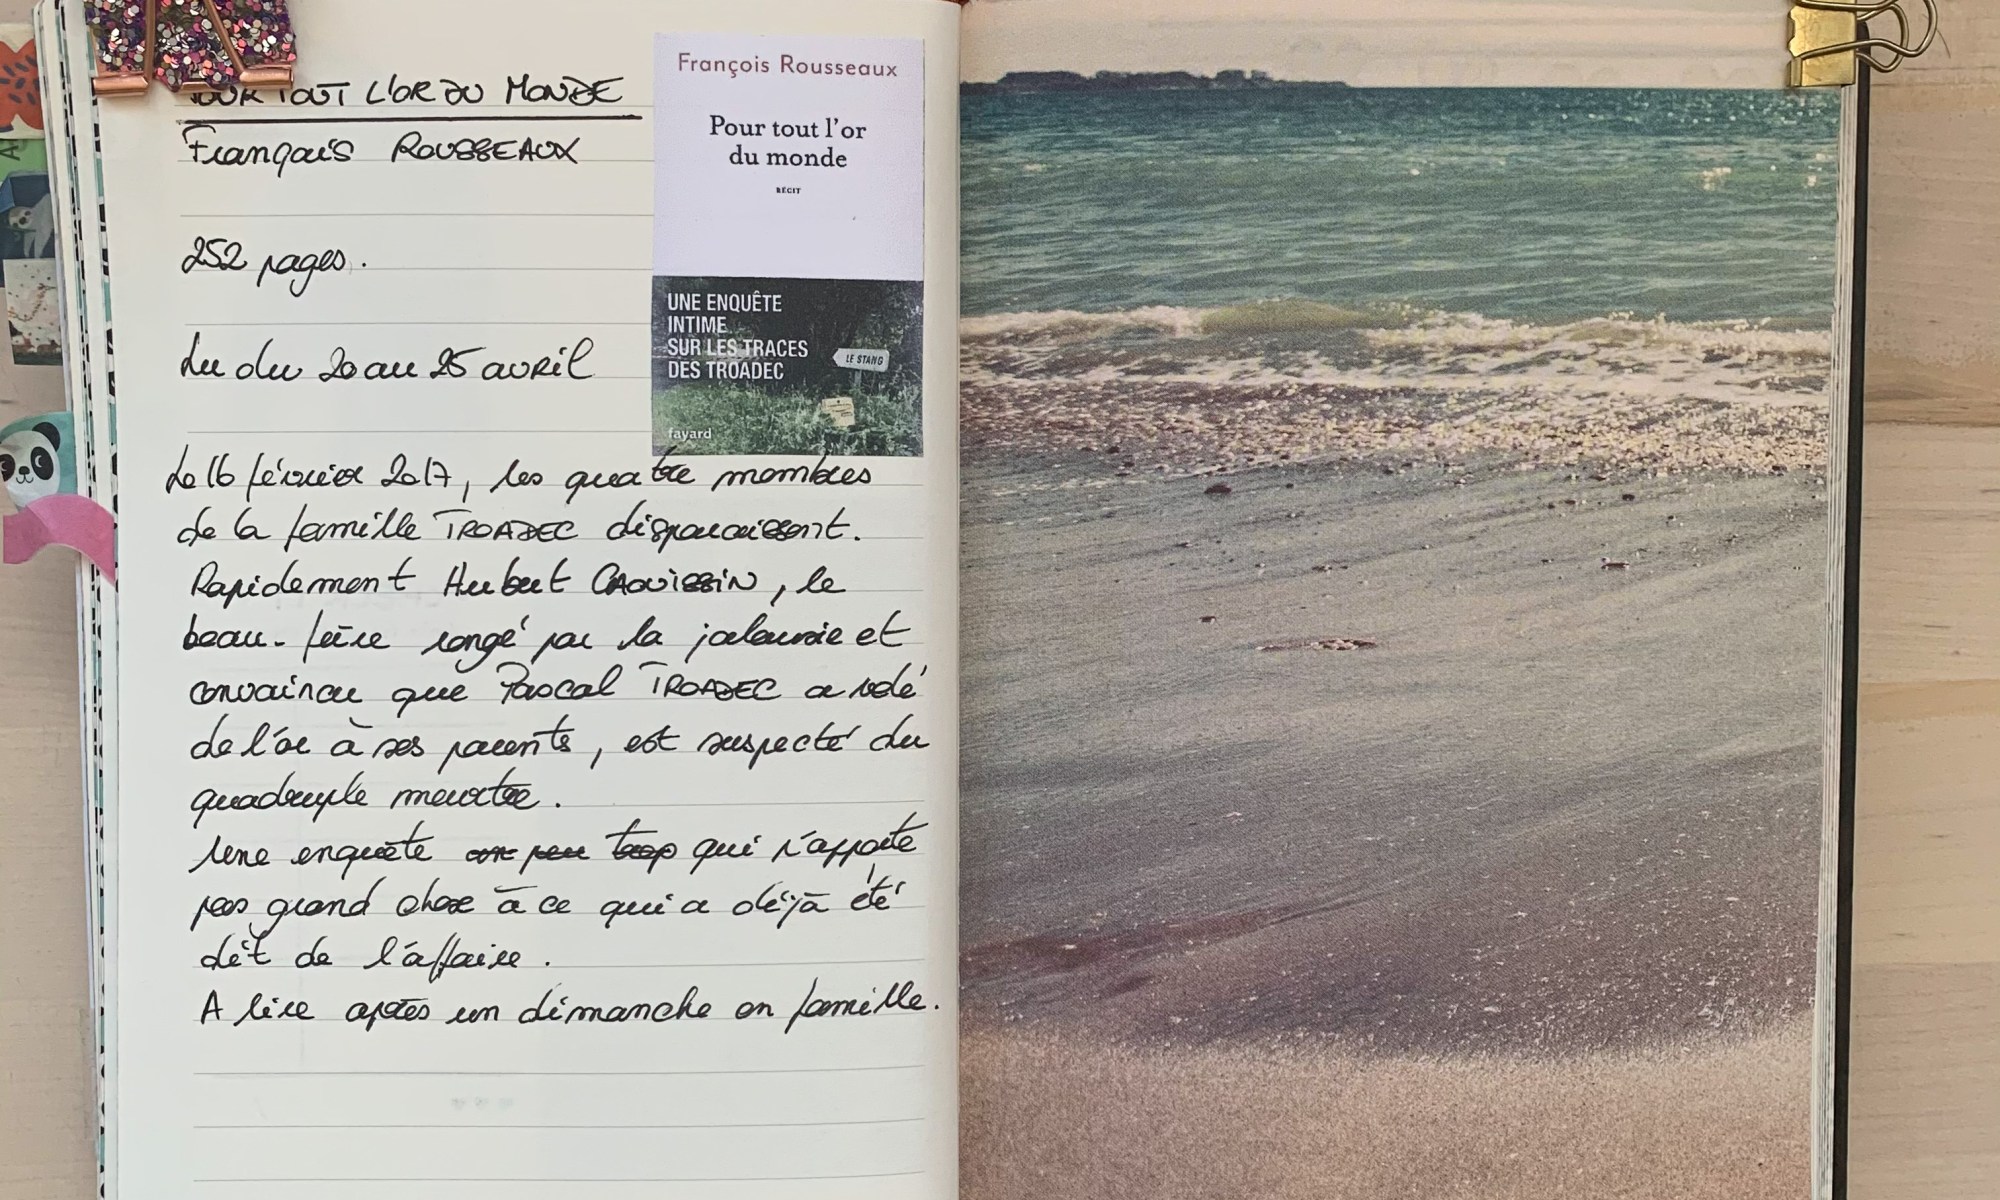 POUR TOUT L'OR DU MONDE
François ROUSSEAUX
252 pages.
Lu du 20 au 25 avril
Le 16 février 2017, les quatre membres
de la famille TROADEC disparaissent.
Rapidement Hubert CAOUISSIN, le
beau-frère rongé par la jalousie et
convaincu que Pascal TROADEC a volé
de l'or à ses parents, est suspecté du
quadruple meurtre.
Une enquête un peu trop qui n'apporte
pas grand chose à ce qui a déjà été
dit de l'affaire.
A lire après un dimanche en famille.
François Rousseaux
Pour tout l'or
du monde
RÉCIT
UNE ENQUÊTE
INTIME
SUR LES TRACES
DES TROADEC
LE STANG
fayard